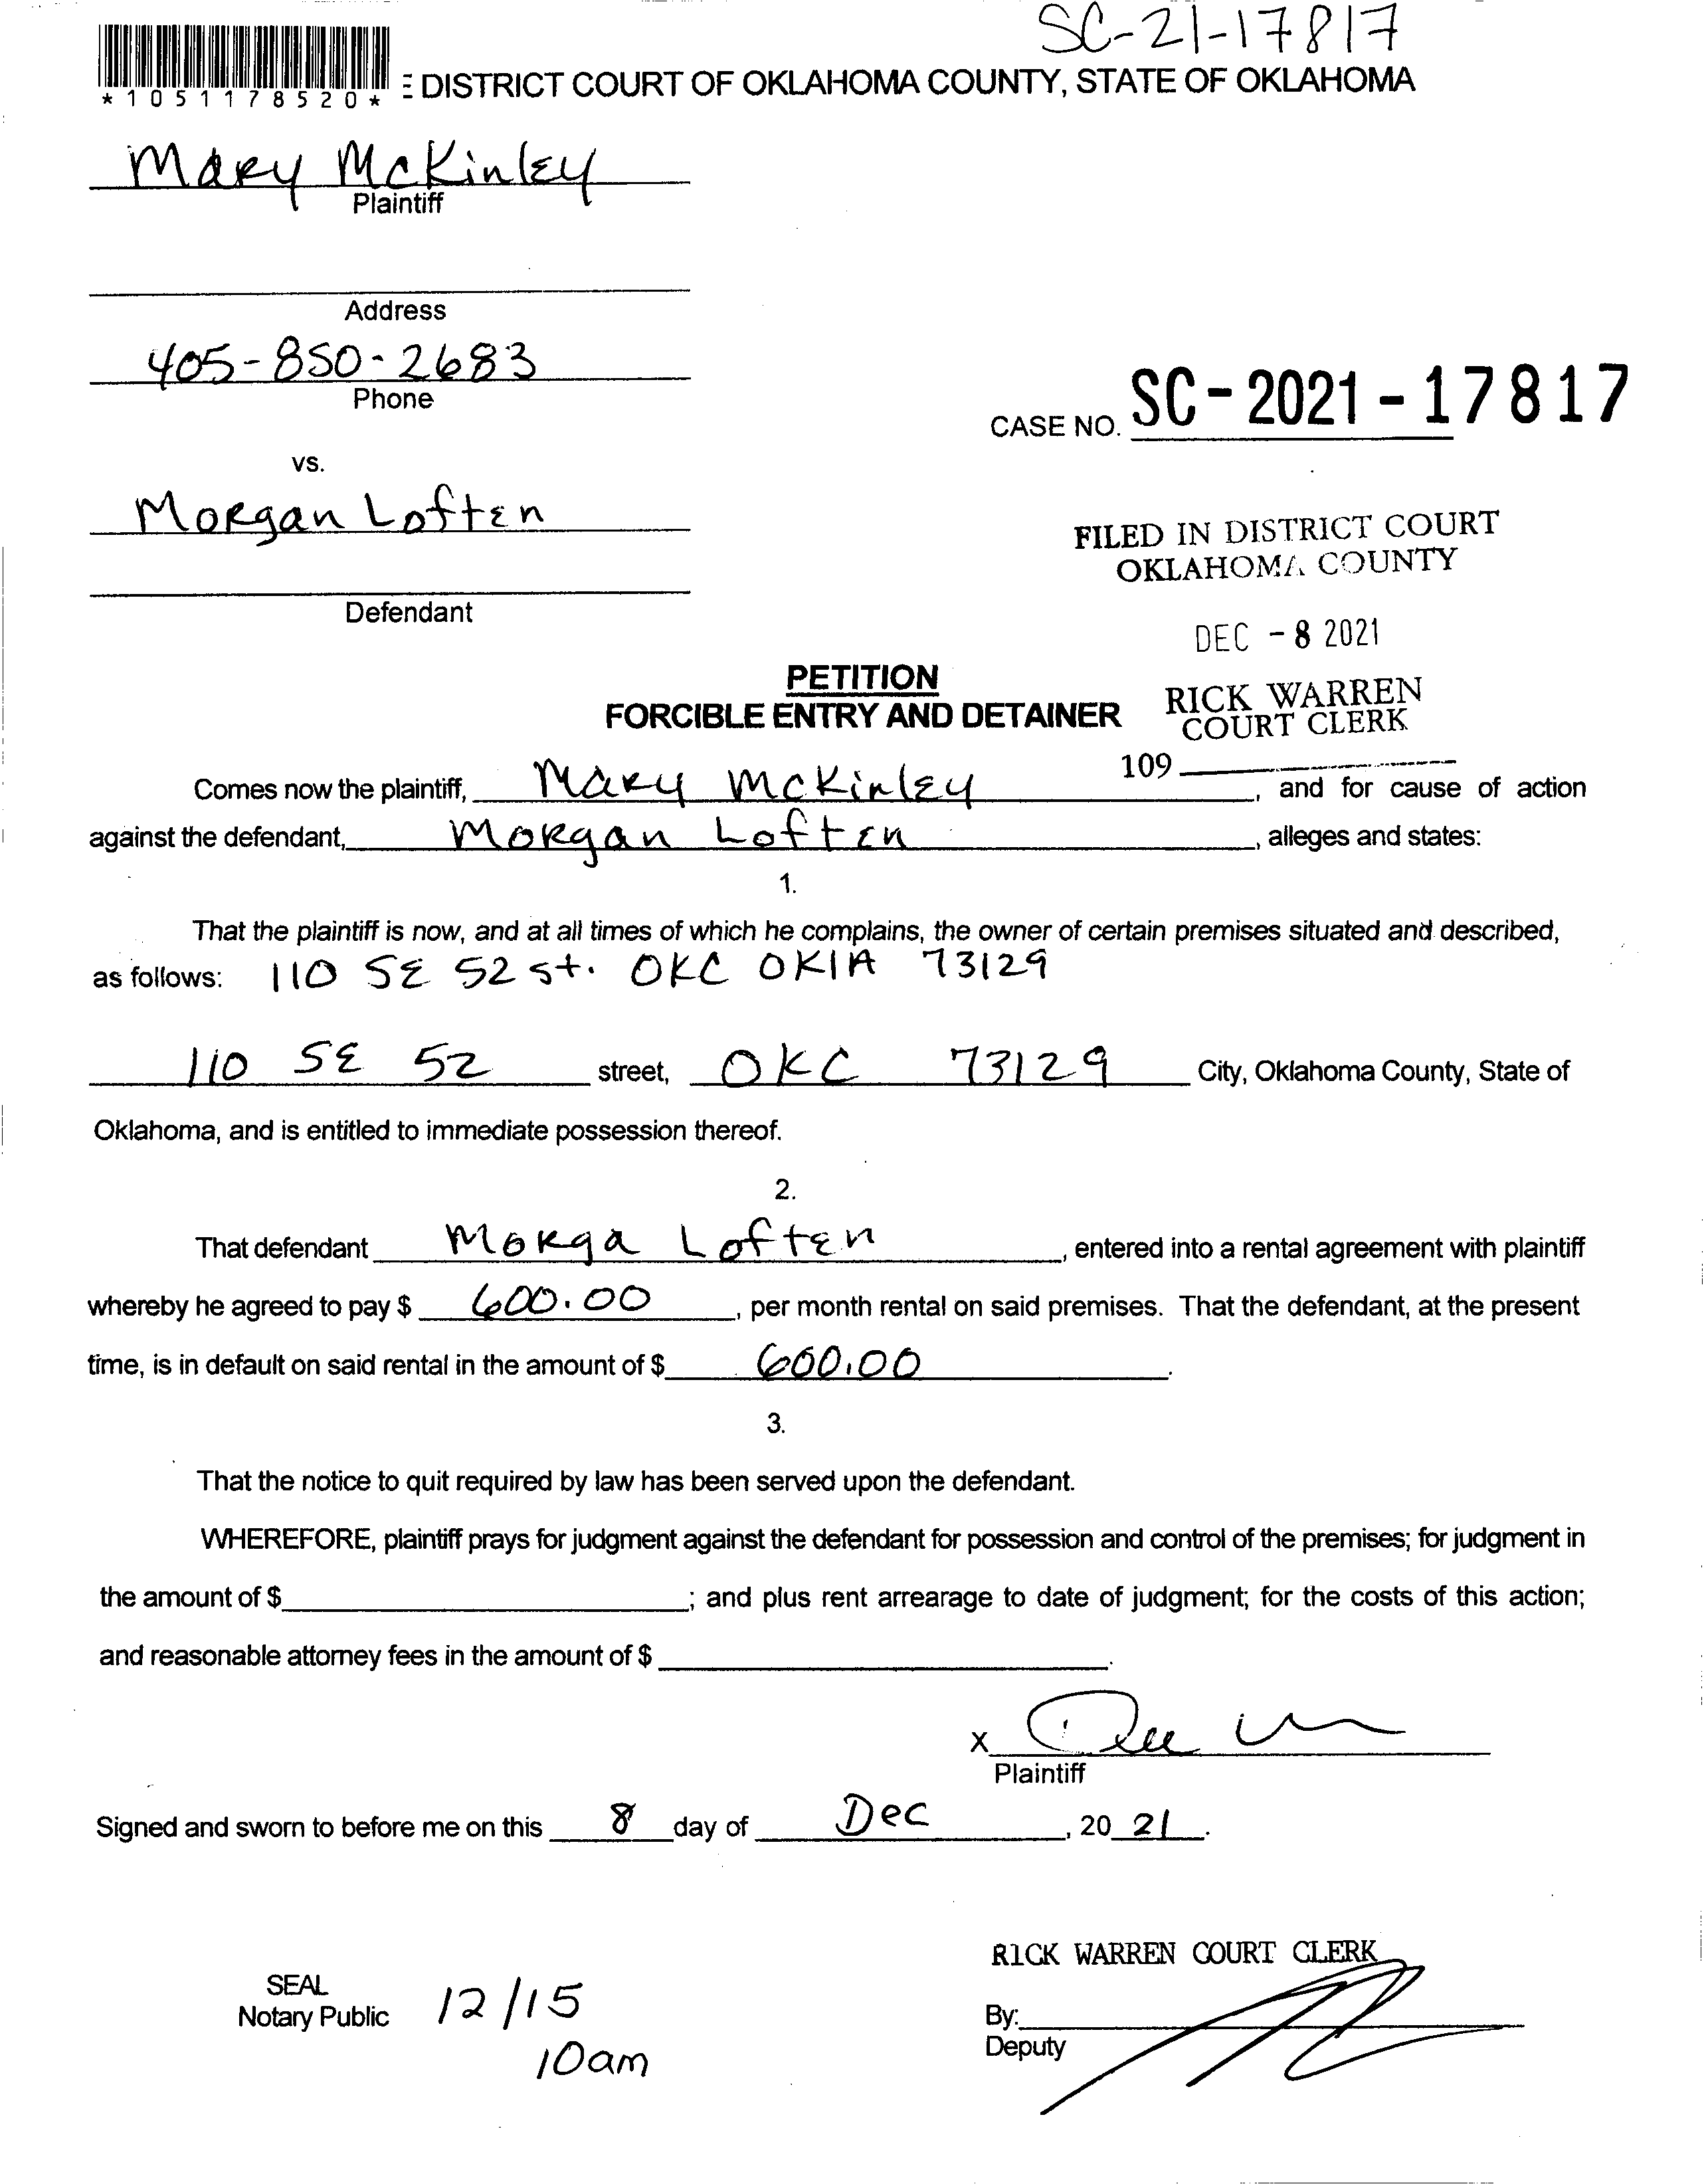 SC-21-17817
*1051178520*
E DISTRICT COURT OF OKLAHOMA COUNTY, STATE OF OKLAHOMA
Mary McKinley
Plaintiff
Address
405-850-2683
Phone
CASE NO. SC-2021-17817
vs.
Morgan Loften
FILED IN DISTRICT COURT
OKLAHOMA COUNTY
Defendant
DEC -8 2021
PETITION
FORCIBLE ENTRY AND DETAINER
RICK WARREN
COURT CLERK
109
Comes now the plaintiff, Mary McKinley, and for cause of action
against the defendant, Morgan Loften, alleges and states:
1.
That the plaintiff is now, and at all times of which he complains, the owner of certain premises situated and described,
as follows: 110 SE 52 st. OKC OKlA 73129
110 SE 52 street, OKC 73129 City, Oklahoma County, State of
Oklahoma, and is entitled to immediate possession thereof.
2.
That defendant Morga Loften, entered into a rental agreement with plaintiff
whereby he agreed to pay $ 600.00, per month rental on said premises. That the defendant, at the present
time, is in default on said rental in the amount of $ 600.00.
3.
That the notice to quit required by law has been served upon the defendant.
WHEREFORE, plaintiff prays for judgment against the defendant for possession and control of the premises; for judgment in
the amount of $; and plus rent arrearage to date of judgment; for the costs of this action;
and reasonable attorney fees in the amount of $.
X
Plaintiff
Signed and sworn to before me on this 8 day of Dec, 20 21.
RICK WARREN COURT CLERK
SEAL
Notary Public 12/15
10am
By:
Deputy